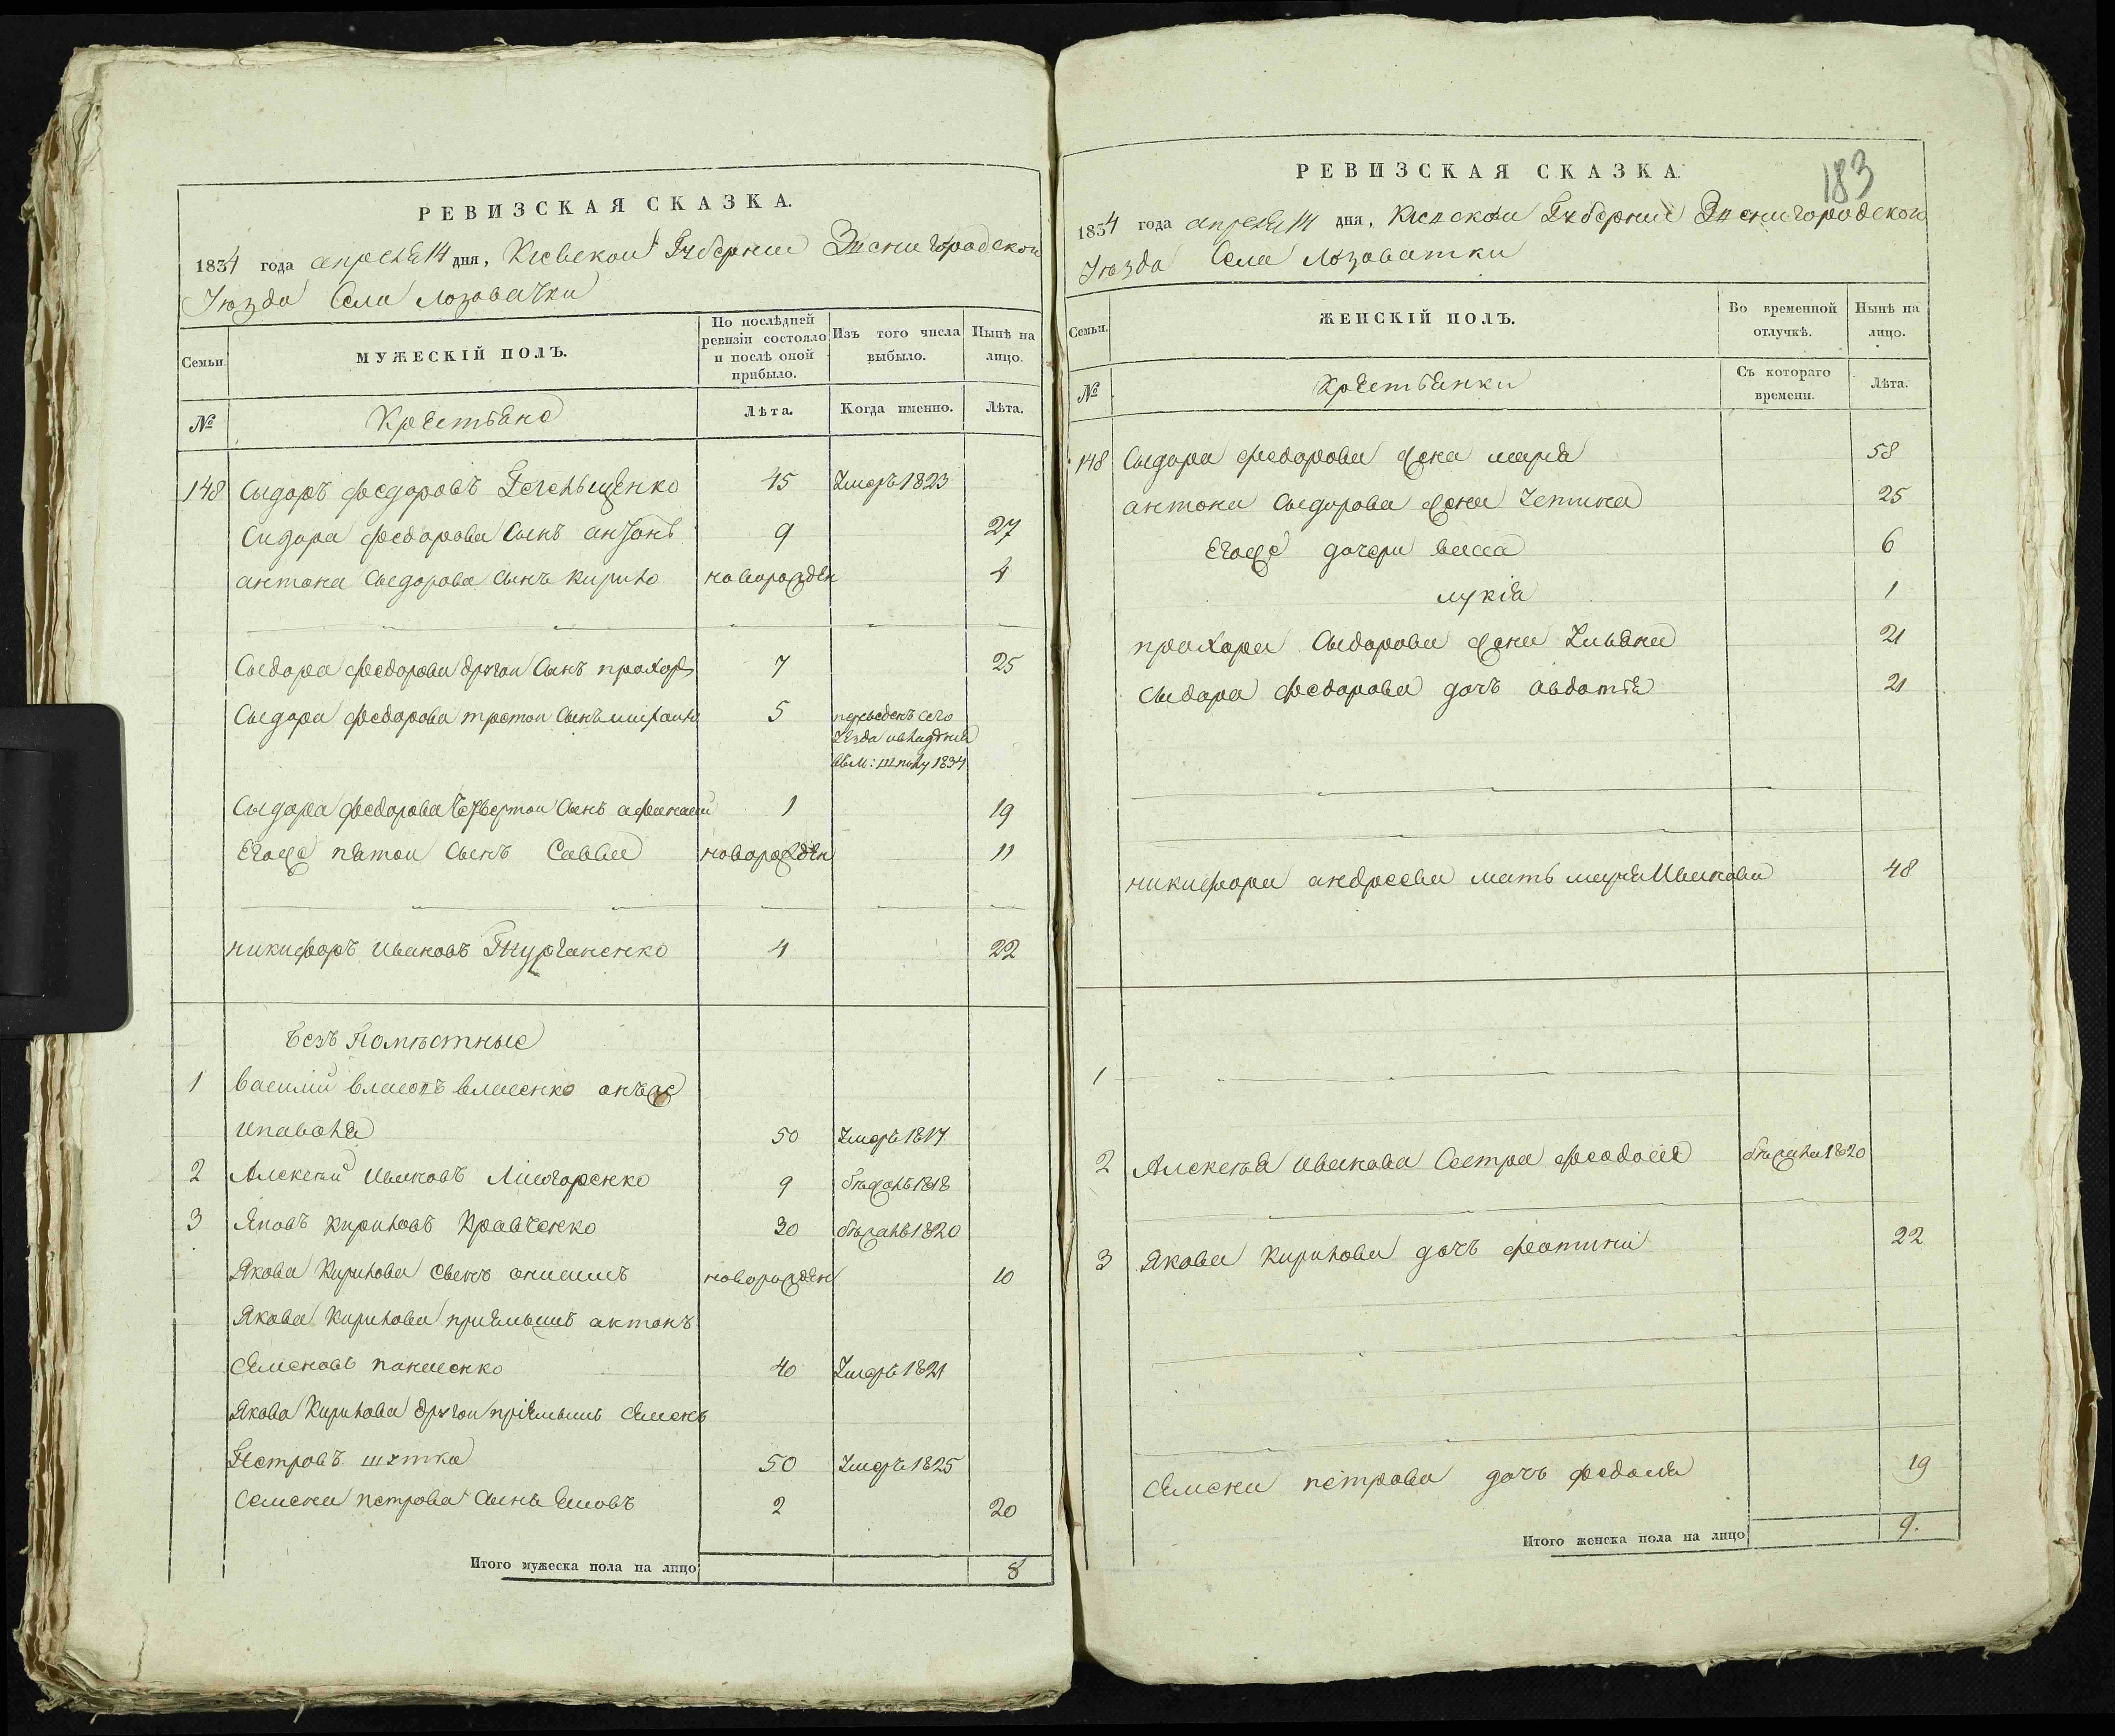 РЕВИЗСКАЯ СКАЗКА.
1834 года апреля 14 дня, Киевской Губернии Звенигородской
Уезда Села Лозоватки
Семьи.
МУЖЕСКІЙ ПОЛЪ.
По послѣдней ревизіи состояло и послѣ оной прибыло.
Изъ того числа выбыло.
Нынѣ на лицо.
№
Крестьяне
Лѣта.
Когда именно.
Лѣта.
148 Сыдоръ Федоровъ 45 Умеръ 1823
Сидора Федорова Сынъ антонъ 9 27
антона Сыдорова Сынъ Кирило новорожден 4
Сыдора Федорова другои Сынъ прохоръ 7 25
Сыдора Федорова третои Сынъ 5 переведенъ сего
уезда
1834
Сыдора Федорова Четвертои Сынъ афанасий 1 19
Егоже пятои Сынъ Савва новорожден 11
никифоръ Ивановъ 4 22
Безъ Поместные
1 василий власовъ власенко онъже
и павола 50 Умеръ 1817
2 Алексей Ивановъ Лисогоренко 9 бежалъ 1818
3 Яковъ Кириловъ Кравченко 30 бежалъ 1820
Якова Кирилова Сынъ анисимъ новорожден 10
Якова Кирилова приемышъ антонъ
Семеновъ 40 Умеръ 1821
Якова Кирилова другои приемышъ Семенъ
Петровъ шутка 50 Умеръ 1825
Семена петрова Сынъ 2 20
Итого мужеска пола на лицо 8
183
РЕВИЗСКАЯ СКАЗКА.
1834 года апреля 14 дня, Киевской Губернии Звенигородской
Уезда Села Лозоватки
Семьи.
ЖЕНСКІЙ ПОЛЪ.
Во временной отлучкѣ.
Нынѣ на лицо.
№
Крестьянки
Съ котораго времени.
Лѣта.
148 Сыдора Федорова жена мария 58
антона Сыдорова жена устина 25
Егоже дочери васса 6
лукія 1
прохора Сыдорова жена Ульяна 21
Сыдора Федорова дочь авдотия 21
никифора андреева мать мария Иванова 48
1
2 Алексея Иванова Сестра феодосия бежала 1820
3 Якова Кирилова дочь фотиния 22
Семена петрова дочь федосия 19
Итого женска пола на лицо 9.